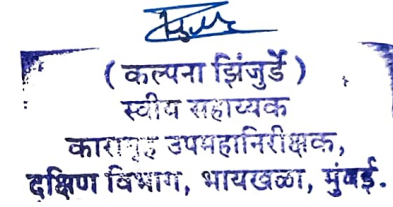 ( कल्पना झिंजुर्डे )
स्वीय सहाय्यक
कारागृह उपमहानिरीक्षक,
दक्षिण विभाग, भायखळा, मुंबई.